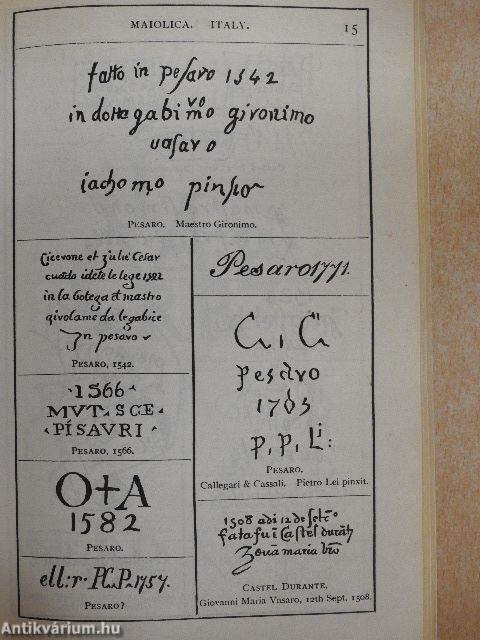 MAIOLICA. ITALY.
15
fatto in pesaro 1542
in botte gabi mo gironimo
vo
vasaro
iachomo pinsor
PESARO. Maestro Gironimo.
Cicerone et Julie Cesar
cuado idete le lege 1542
in la botega d mastro
girolamo da le gabice
In pesaro
PESARO, 1542.
·1566·
MVT·SCE
PÍSAVRI
PESARO, 1566.
O+A
1582
PESARO.
ell:r· P.C.P. 1757.
PESARO?
Pesaro 1771.
C, C
pesaro
1765
P, P, Li:
PESARO.
Callegari & Cassali. Pietro Lei pinxit.
1508 adi 12 de
fata fu i Castel durāt
Zoua maria vro
CASTEL DURANTE.
Giovanni Maria Vasaro, 12th Sept. 1508.
Antikvárium.hu